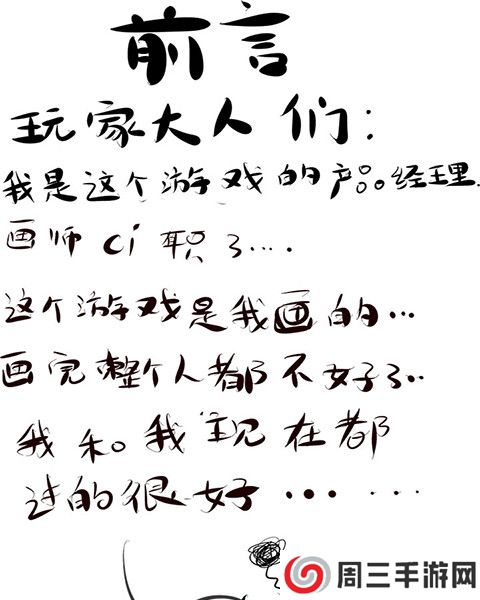 前言
玩家大人们:
我是这个游戏的产品经理.
画师ci职了...
这个游戏是我画的...
画完整个人都不好了..
我和我现在都
过的很好... ...
周三手游网